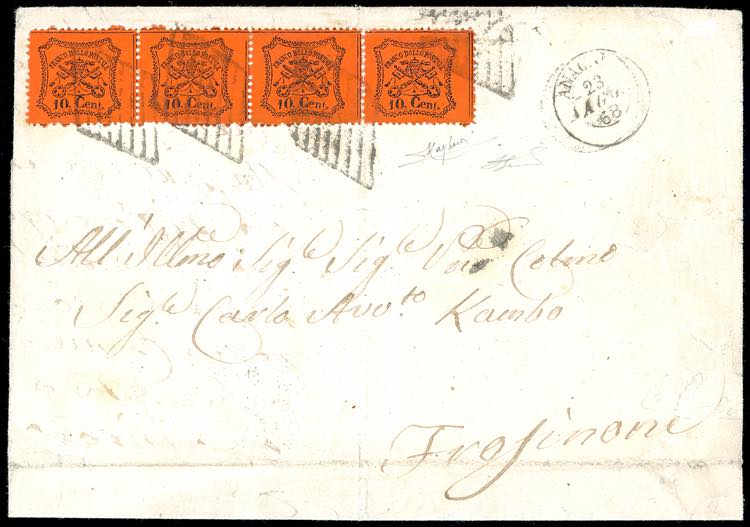 FRANCO BOLLO POSTALE
10. Cent.
FRANCO BOLLO POSTALE
10. Cent.
FRANCO BOLLO POSTALE
10. Cent.
FRANCO BOLLO POSTALE
10. Cent.
23
68
All'Illmo Sigle Sigle Colmo
Sigle Carlo Avvto Kambo
Frosinone